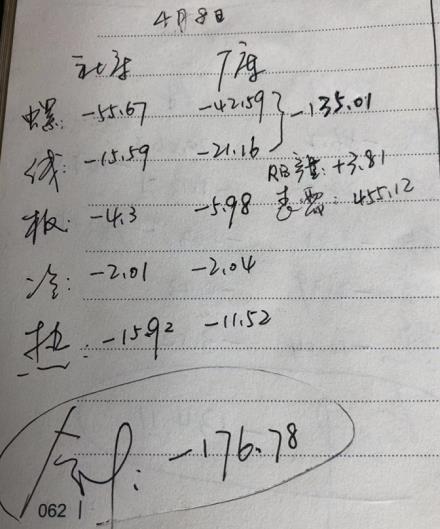 4月8日
社库 厂库
螺: -55.67 -42.59 } -135.01
线: -15.59 -21.16
RB产量: +3.81
板: -4.3 -5.98 表需: 455.12
冷: -2.01 -2.04
热: -15.92 -11.52
: -176.78
062